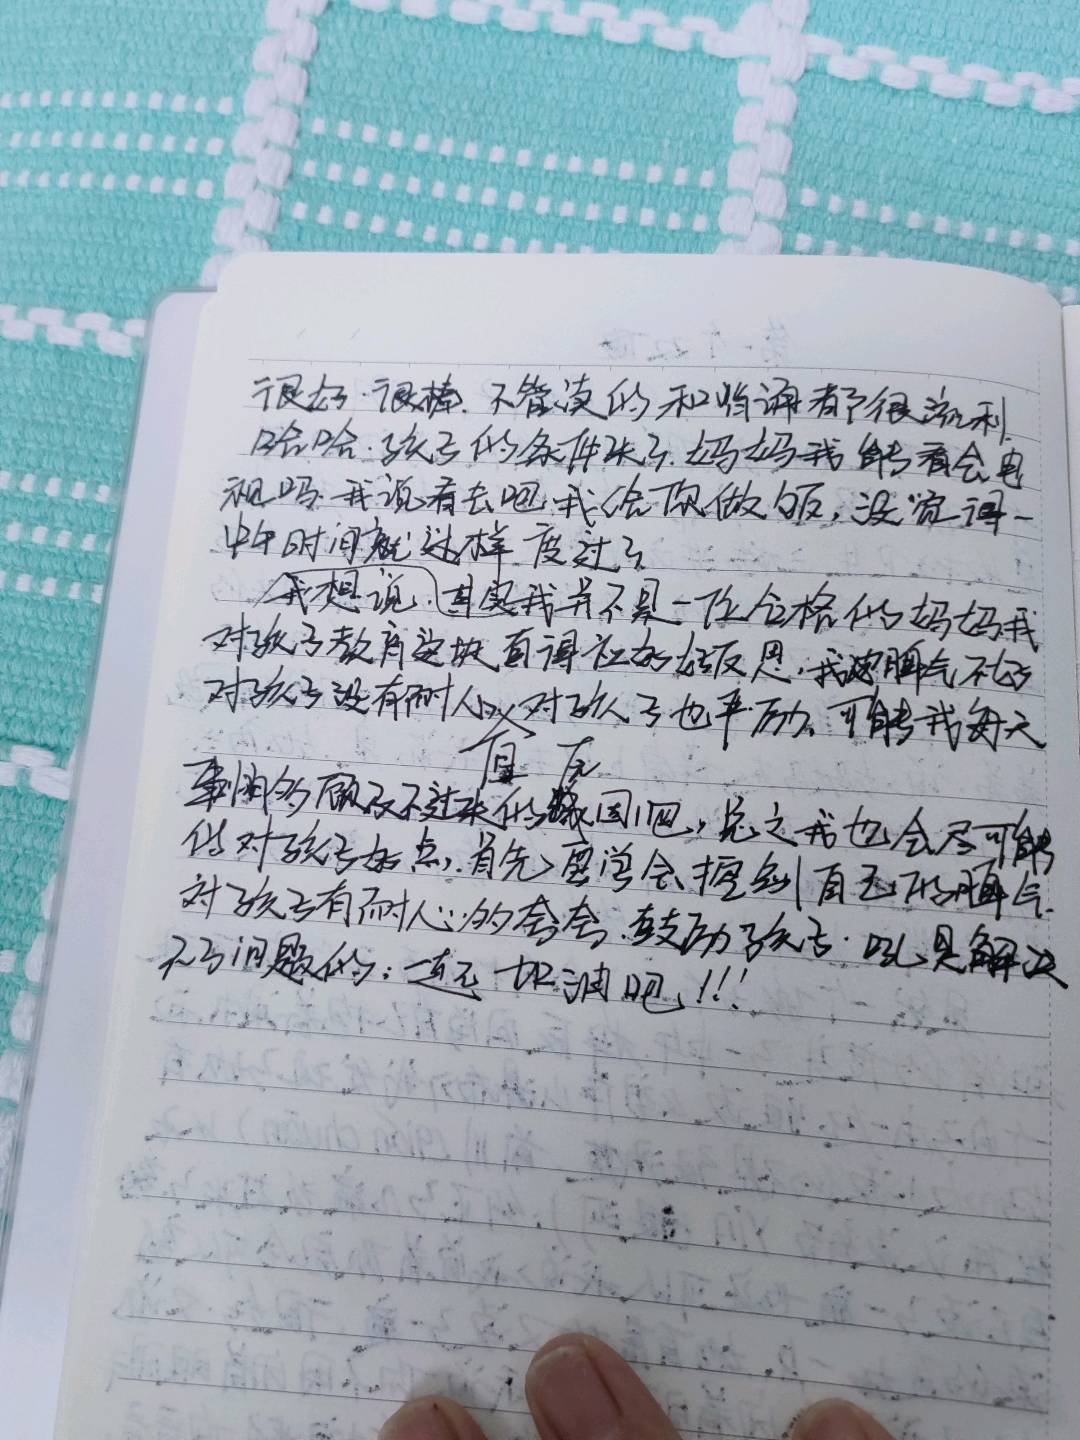 很好.很棒.不管读的和背诵都很流利.
哈哈.孩子的条件来了.妈妈我能看会电
视吗.我说看去吧.我给你做饭,没觉得一
中午时间就这样度过了
我想说.其实我并不是一位合格的妈妈我
对孩子教育这块真得社好好反思.我脾气不好
对孩子没有耐心对孩子也严励.可能我每天
事情的顾及不过来的原因吧,总之我也会尽可能
的对孩子好点,首先要学会控制自己的脾气.
对孩子有耐心的.鼓励孩子.吼是解决
不了问题的:一起加油吧!!!